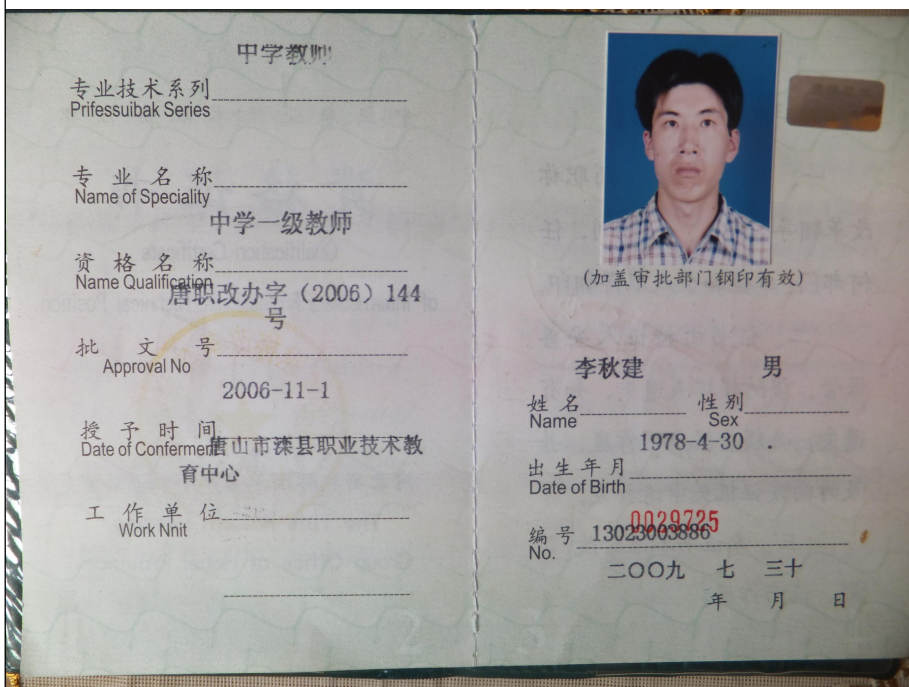 中学教师
专业技术系列
Prifessuibak Series
专业名称
Name of Speciality
中学一级教师
资格名称
Name Qualification
唐职改办字（2006）144
号
批文号
Approval No
2006-11-1
授予时间
Date of Conferment
唐山市滦县职业技术教
育中心
工作单位
Work Nnit
(加盖审批部门钢印有效)
李秋建 男
姓名 性别
Name Sex
1978-4-30
出生年月
Date of Birth
0039725
编号 13023003886
No.
二〇〇九 七 三十
年 月 日